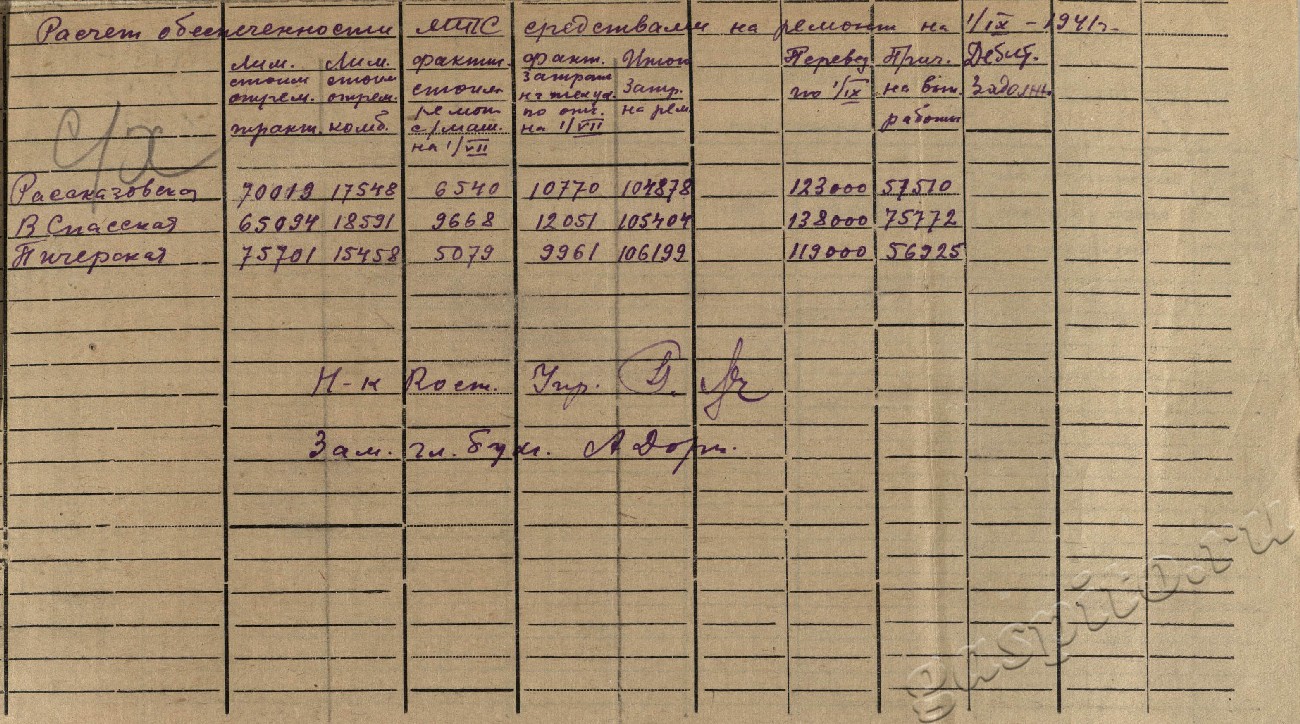 Расчет обеспеченности МТС средствами на ремонт на 1/IX - 1941г.
Лим. Лим. фактич. факт. Итог Перевед Прич. Дебит.
стоим стоим стоим. затрат Затр. по 1/IX на вып. Задолжн.
отрем. отрем. ремонт на текущ. на рем. работы
тракт. комб. с/маш. по отч.
на 1/VII на 1/VII
с/х
Рассказовская 70019 17548 6540 10770 104878 123000 57510
В Спасская 65094 18591 9668 12051 105404 138000 75772
Пичерская 75701 15458 5079 9961 106199 119000 56925
Н-к Упр.
Зам. гл. бух. А Дорт.
gaspito.ru